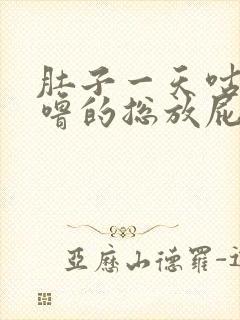 肚子一天咕
噜的总放屁
亚历山德罗-迈